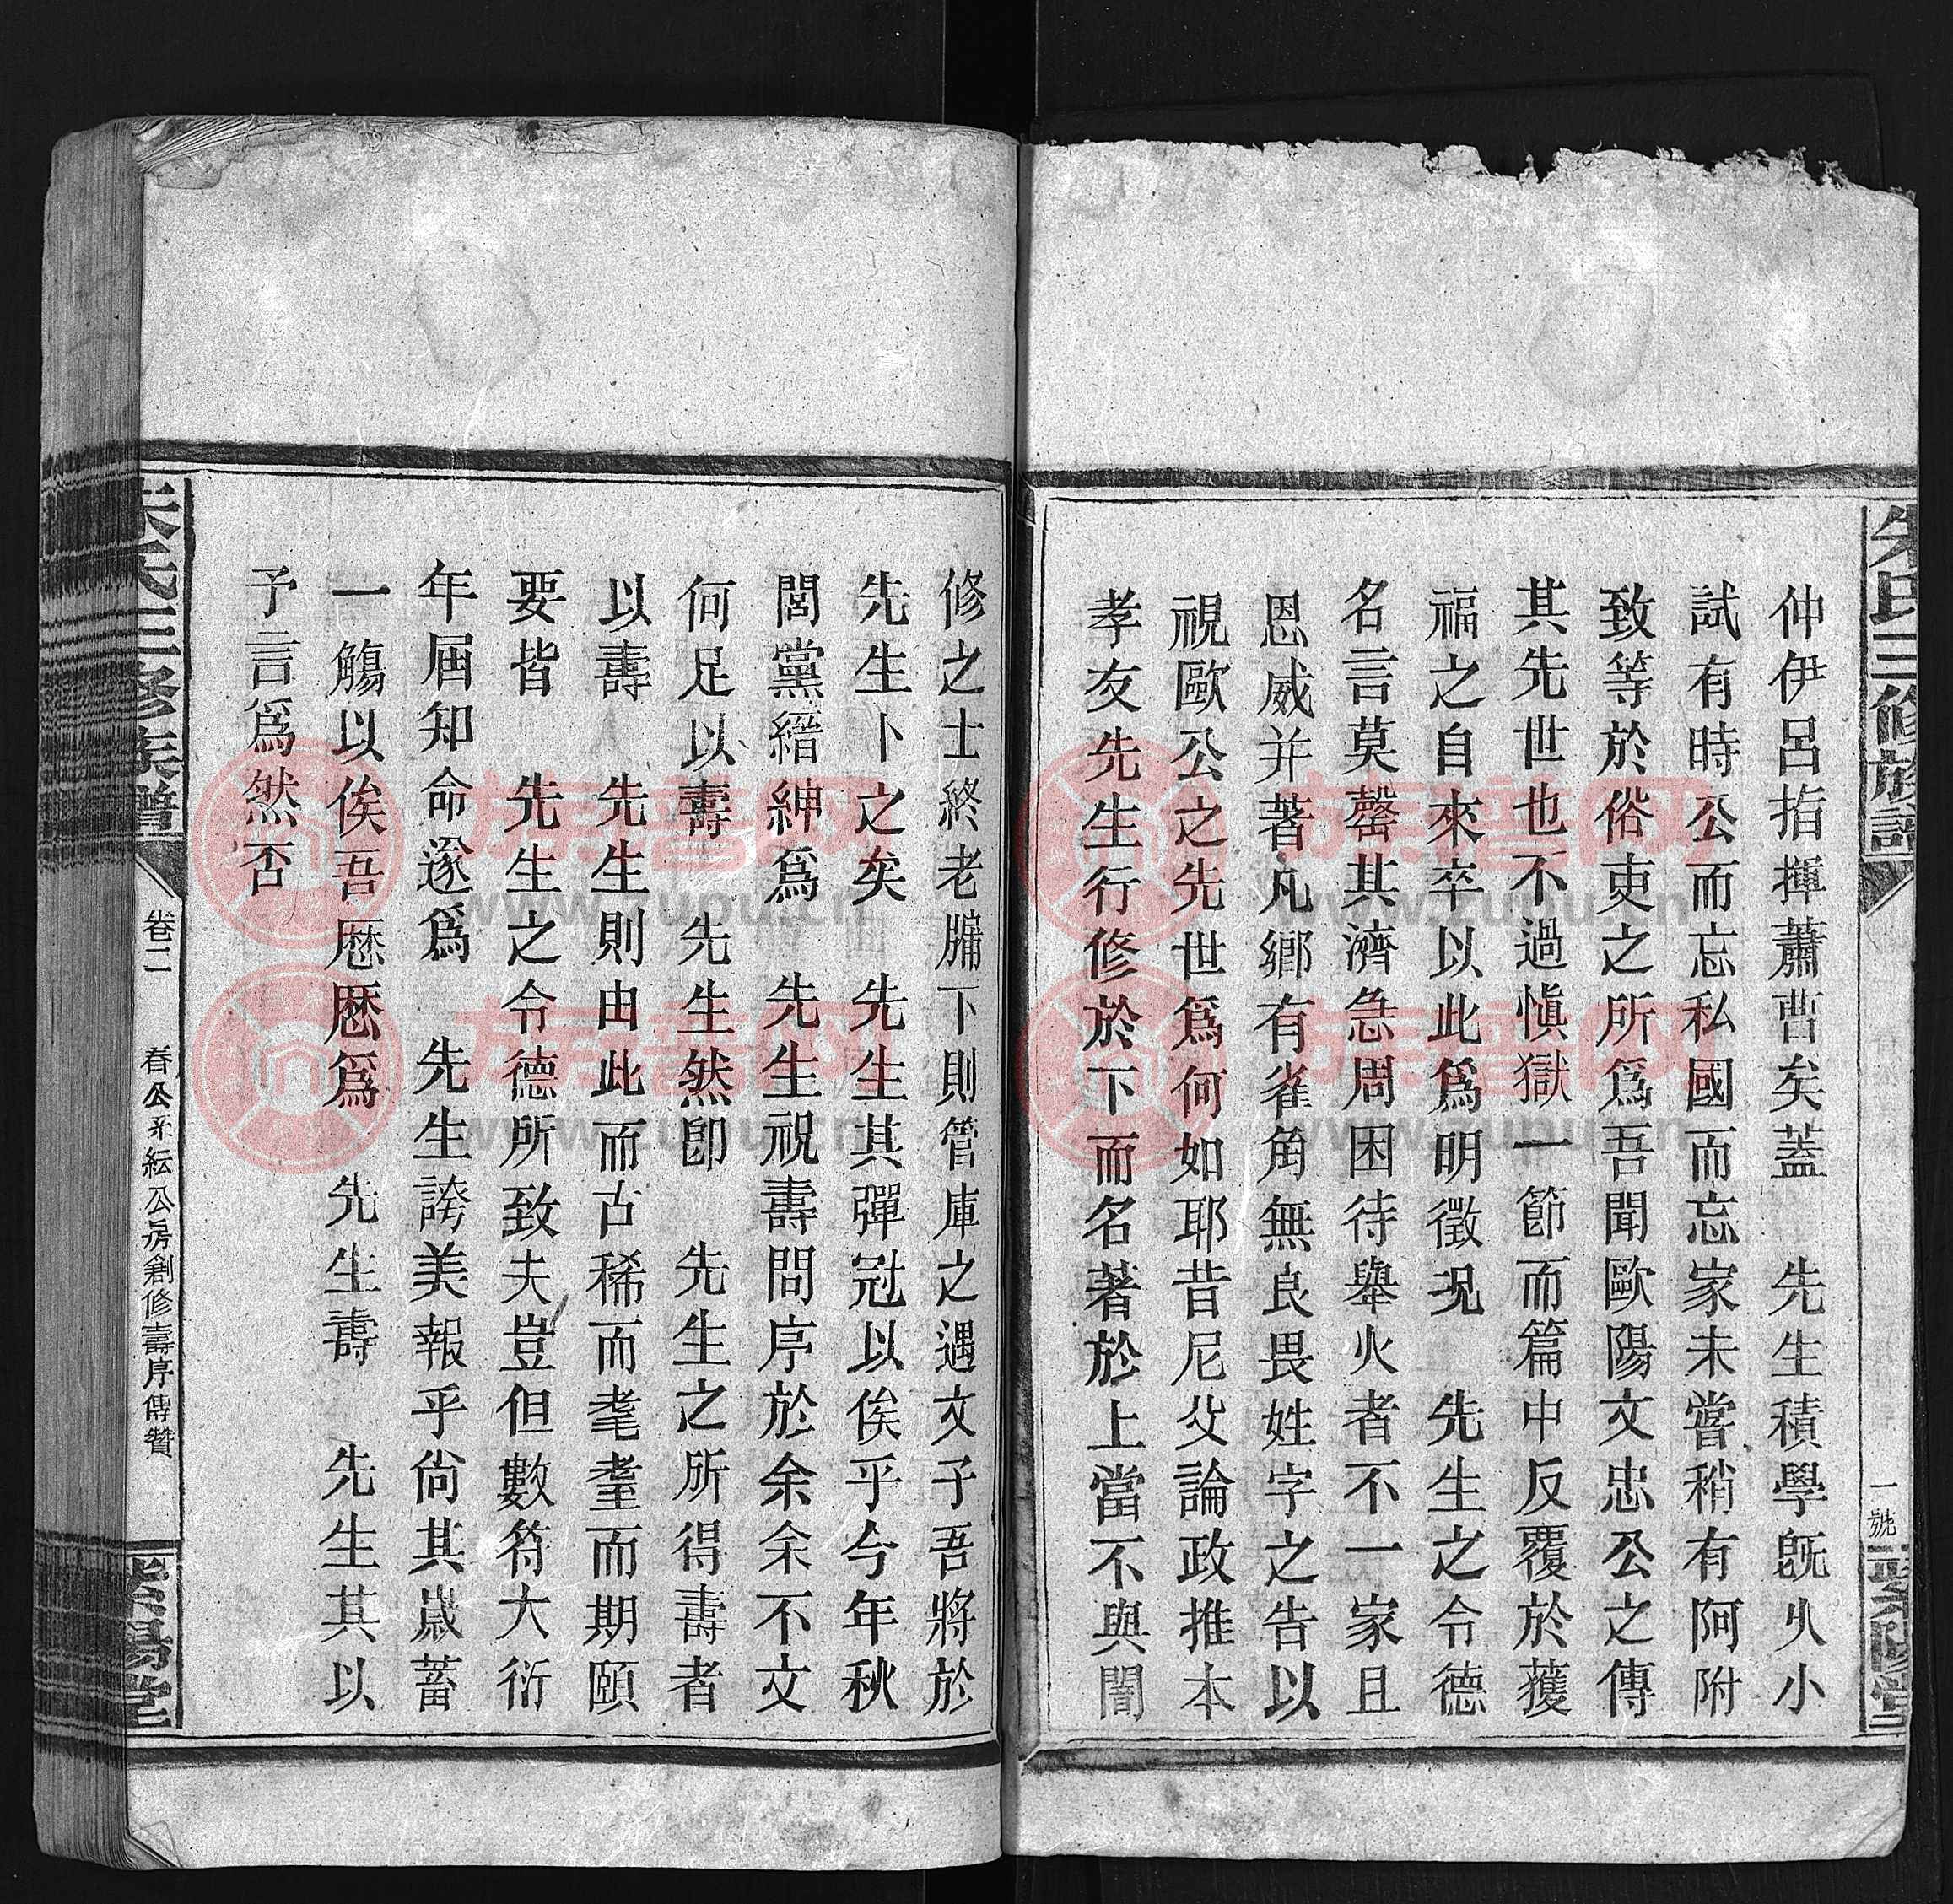 朱氏三修族譜
一號
紫陽堂
仲伊呂指揮蕭曹矣蓋　先生積學旣乆小
試有時公而忘私國而忘家未嘗稍有阿附
致等於俗吏之所爲吾聞歐陽文忠公之傳
其先世也不過慎獄一節而篇中反覆於獲
福之自來卒以此爲明徵况　先生之令德
名言莫罄其濟急周困待舉火者不一家且
恩威并著凡鄉有雀角無良畏姓字之告以
視歐公之先世爲何如耶昔尼父論政推本
孝友先生行修於下而名著於上當不與闇
修之士終老牖下則管庫之遇文子吾將於
先生卜之矣　先生其彈冠以俟乎今年秋
閭黨縉紳爲　先生祝壽問序於余余不文
何足以壽　先生然卽　先生之所得壽者
以壽　先生則由此而古稀而耄耋而期頤
要皆　先生之令德所致夫豈但數符大衍
年届知命遂爲　先生誇美報乎尙其歲蓄
一觴以俟吾厯厯爲　先生壽　先生其以
予言爲然否
朱氏三修族譜
卷二
春公系紜公房創修壽序傳贊
紫陽堂
族譜网
www.zupu.cn
族譜网
www.zupu.cn
族譜网
www.zupu.cn
族譜网
www.zupu.cn